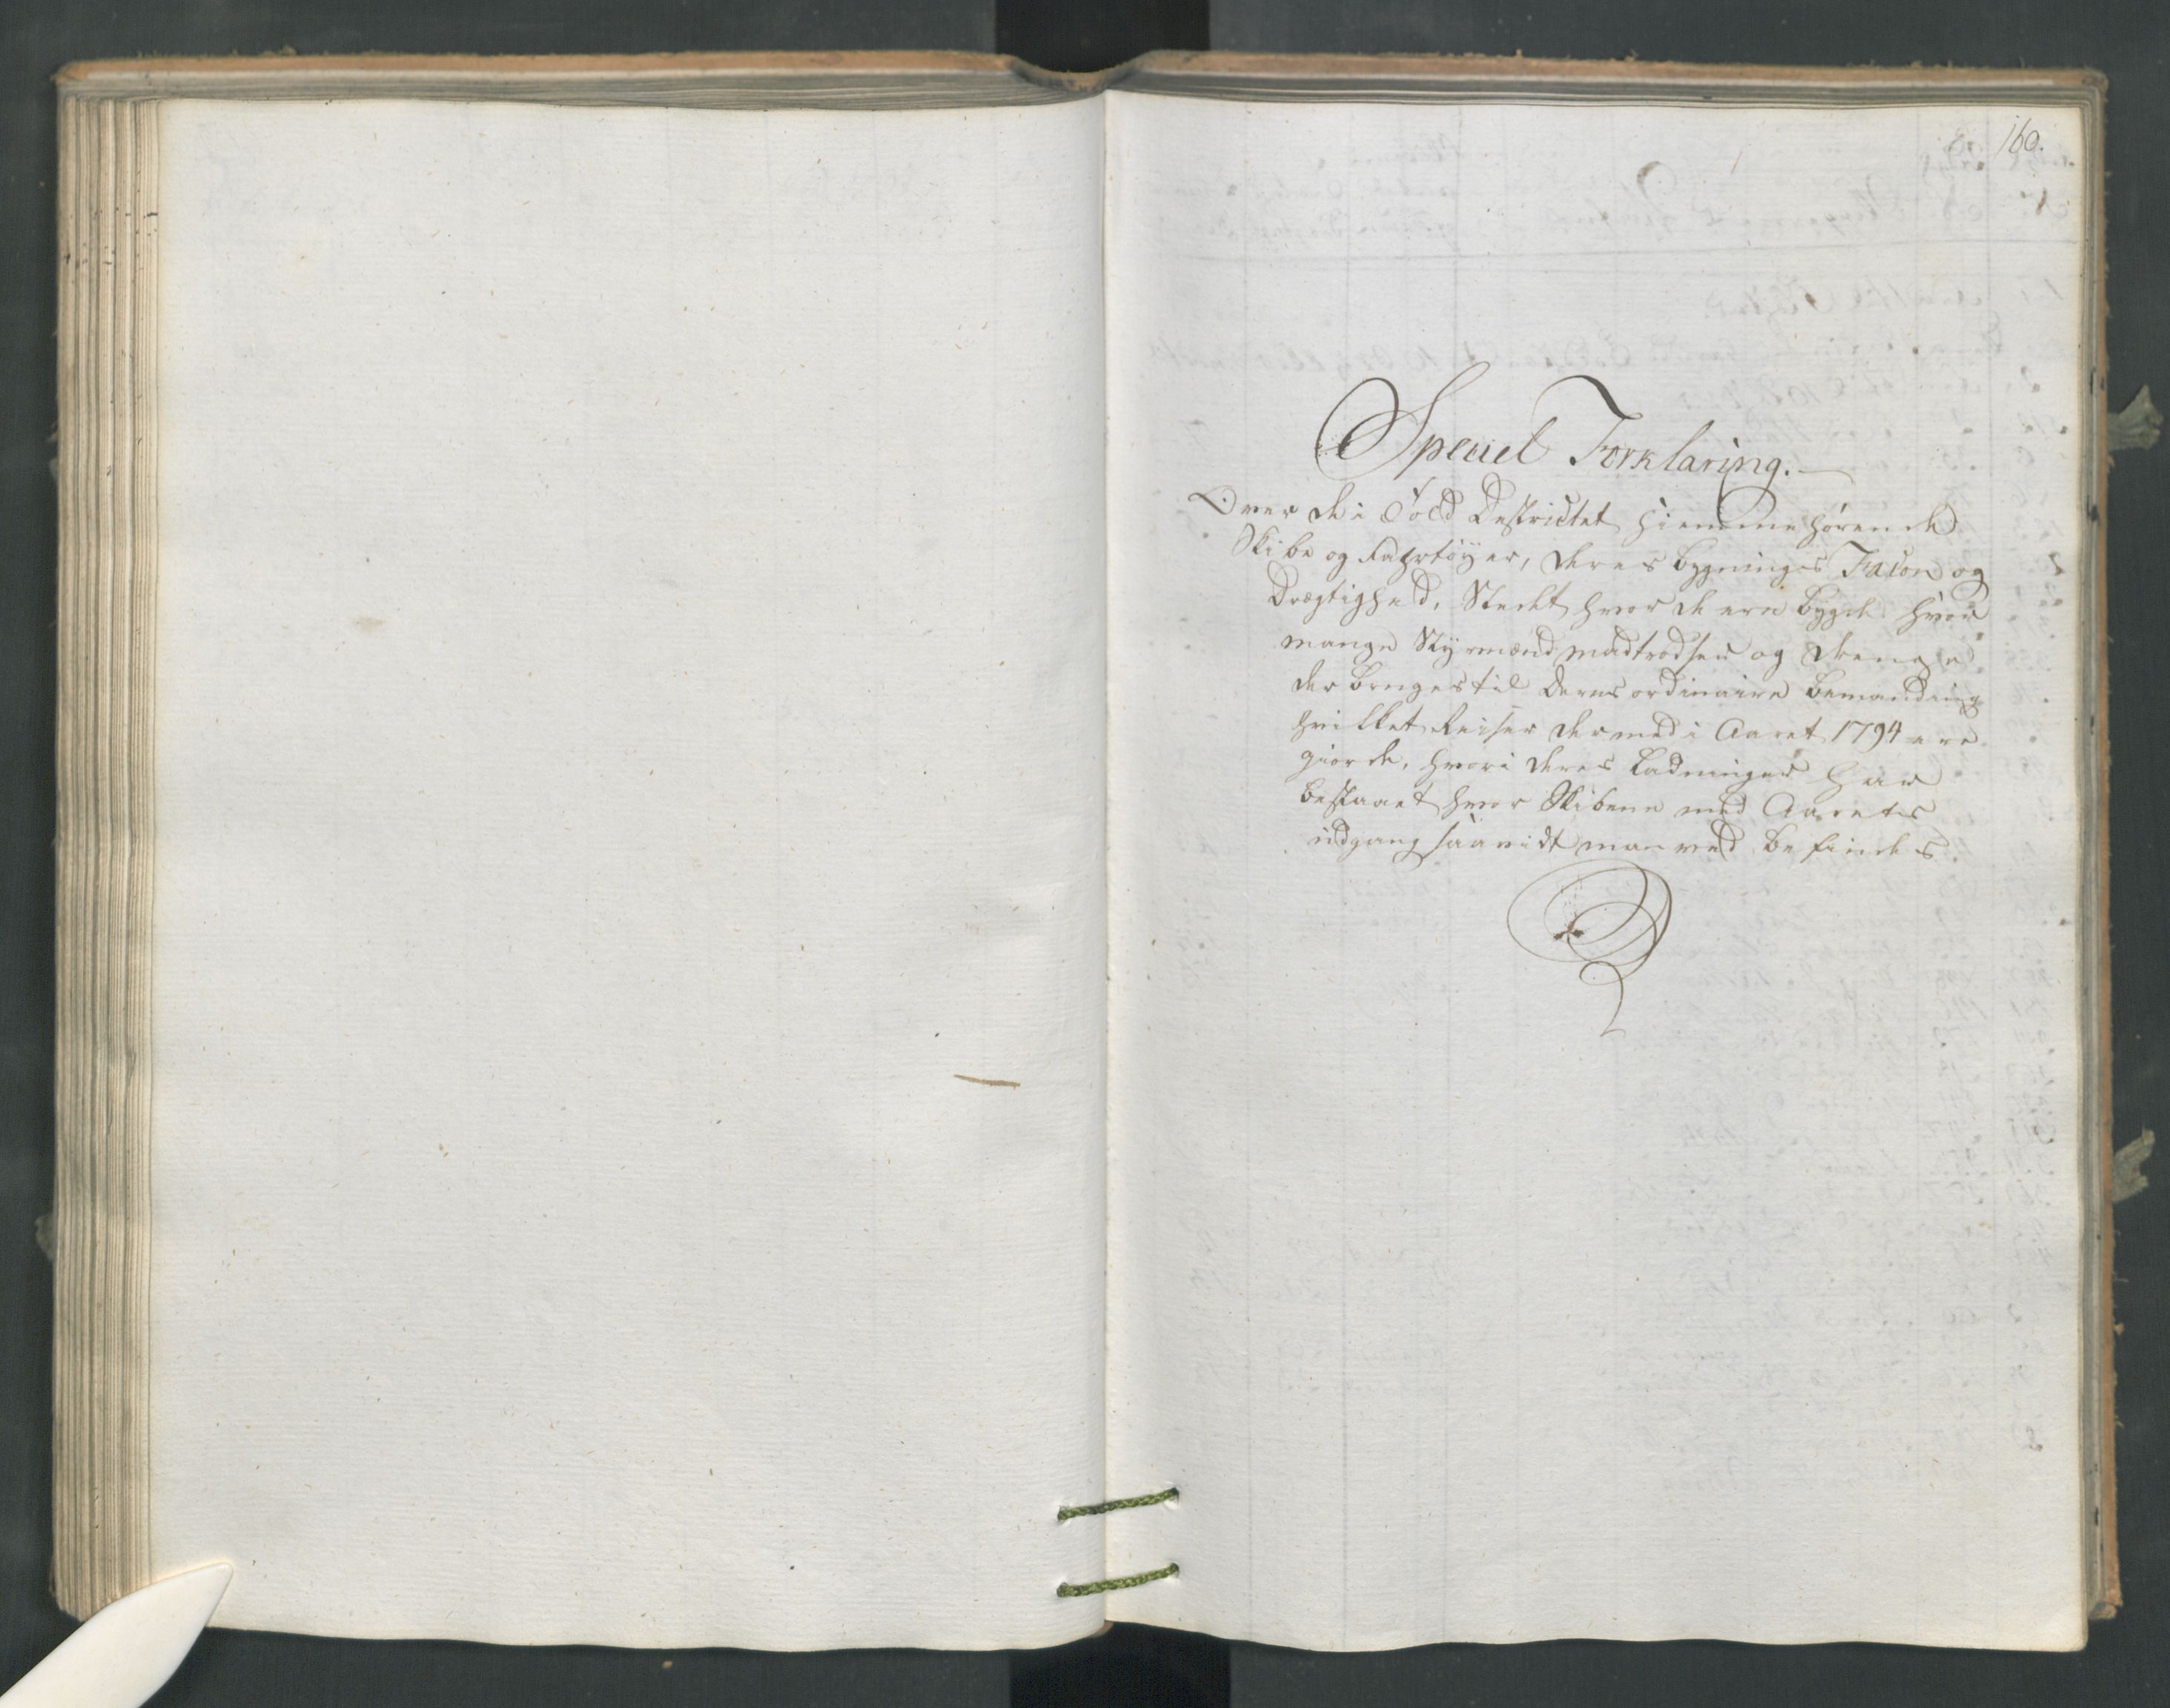 160.
Speciel Forklaring.
Over de i Told Destrictet hiemmehørende
Skibe og Fahrtøÿer, deres bygnings Facon og
Drægtighed, Stedet hvor de ere bÿgde hvor
mange Stÿrmænd madtrodser og drenge
der bruges til deres ordinaire bemanding
hvilket Reiser dermed i Aaret 1794 ere
giorde, hvori deres Ladninger har
bestaaet hvor Skibene med Aarets
udgang saavidt man ved befindes